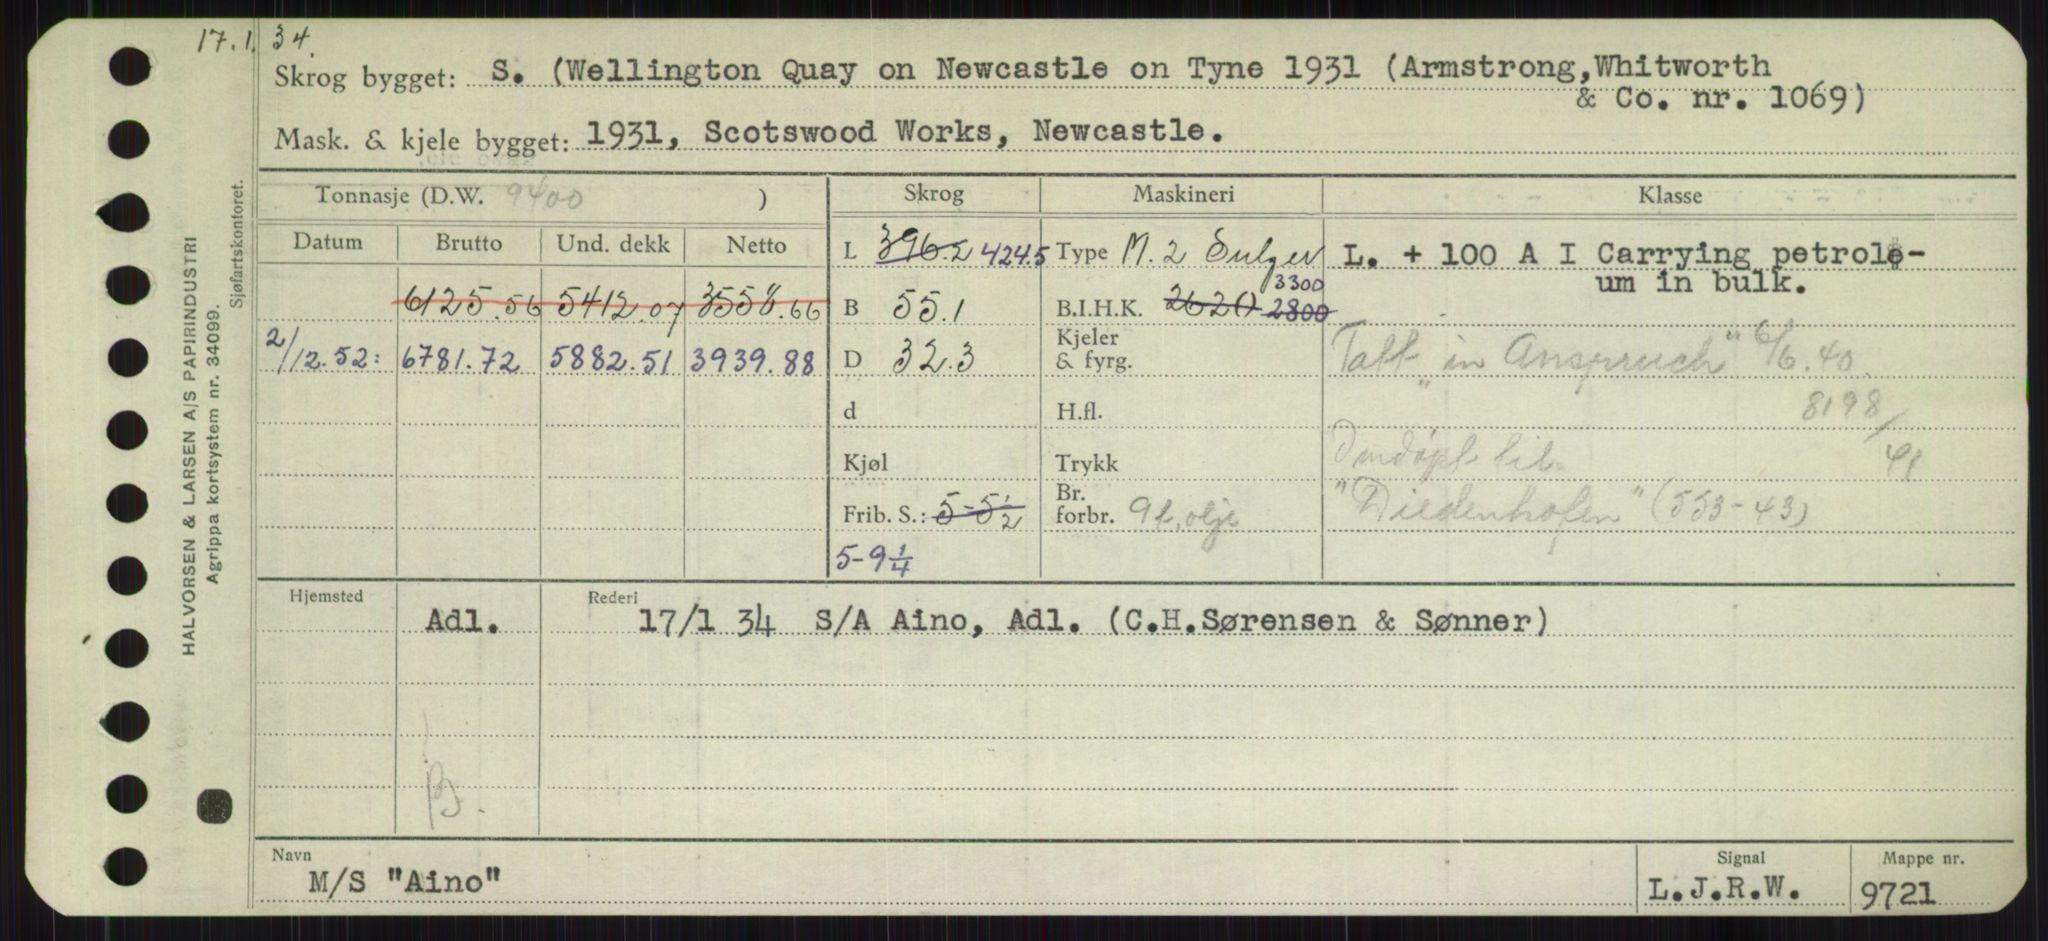 17.1.34.
Skrog bygget: S. (Wellington Quay on Newcastle on Tyne 1931 (Armstrong, Whitworth
& Co. nr. 1069)
Mask. & kjele bygget: 1931, Scotswood Works, Newcastle.
Tonnasje (D.W. 9400 ) Skrog Maskineri Klasse
Datum Brutto Und. dekk Netto
L 396.2 424.5 Type M. 2 Sulzer L. + 100 A I Carrying petrole-
um in bulk.
3300
6125.56 5412.07 3558.66 B 55.1 B.I.H.K. 2620 2800
2/12.52: 6781.72 5882.51 3939.88 D 32.3 Kjeler
& fyrg.
Tatt "in Anspruch" 6/6.40.
d H.fl. 8198/41
Kjøl Trykk Omdøpt til
Frib. S.: 5-5½ Br.
forbr. 9 t. olje "Diedenhofen" (553-43)
5-9¼
Hjemsted Rederi
Adl. 17/1 34 S/A Aino, Adl. (C.H.Sørensen & Sønner)
B.
Navn Signal Mappe nr.
M/S "Aino" L.J.R.W. 9721
HALVORSEN & LARSEN A/S PAPIRINDUSTRI
Agrippa kortsystem nr. 34099.
Sjøfartskontoret.